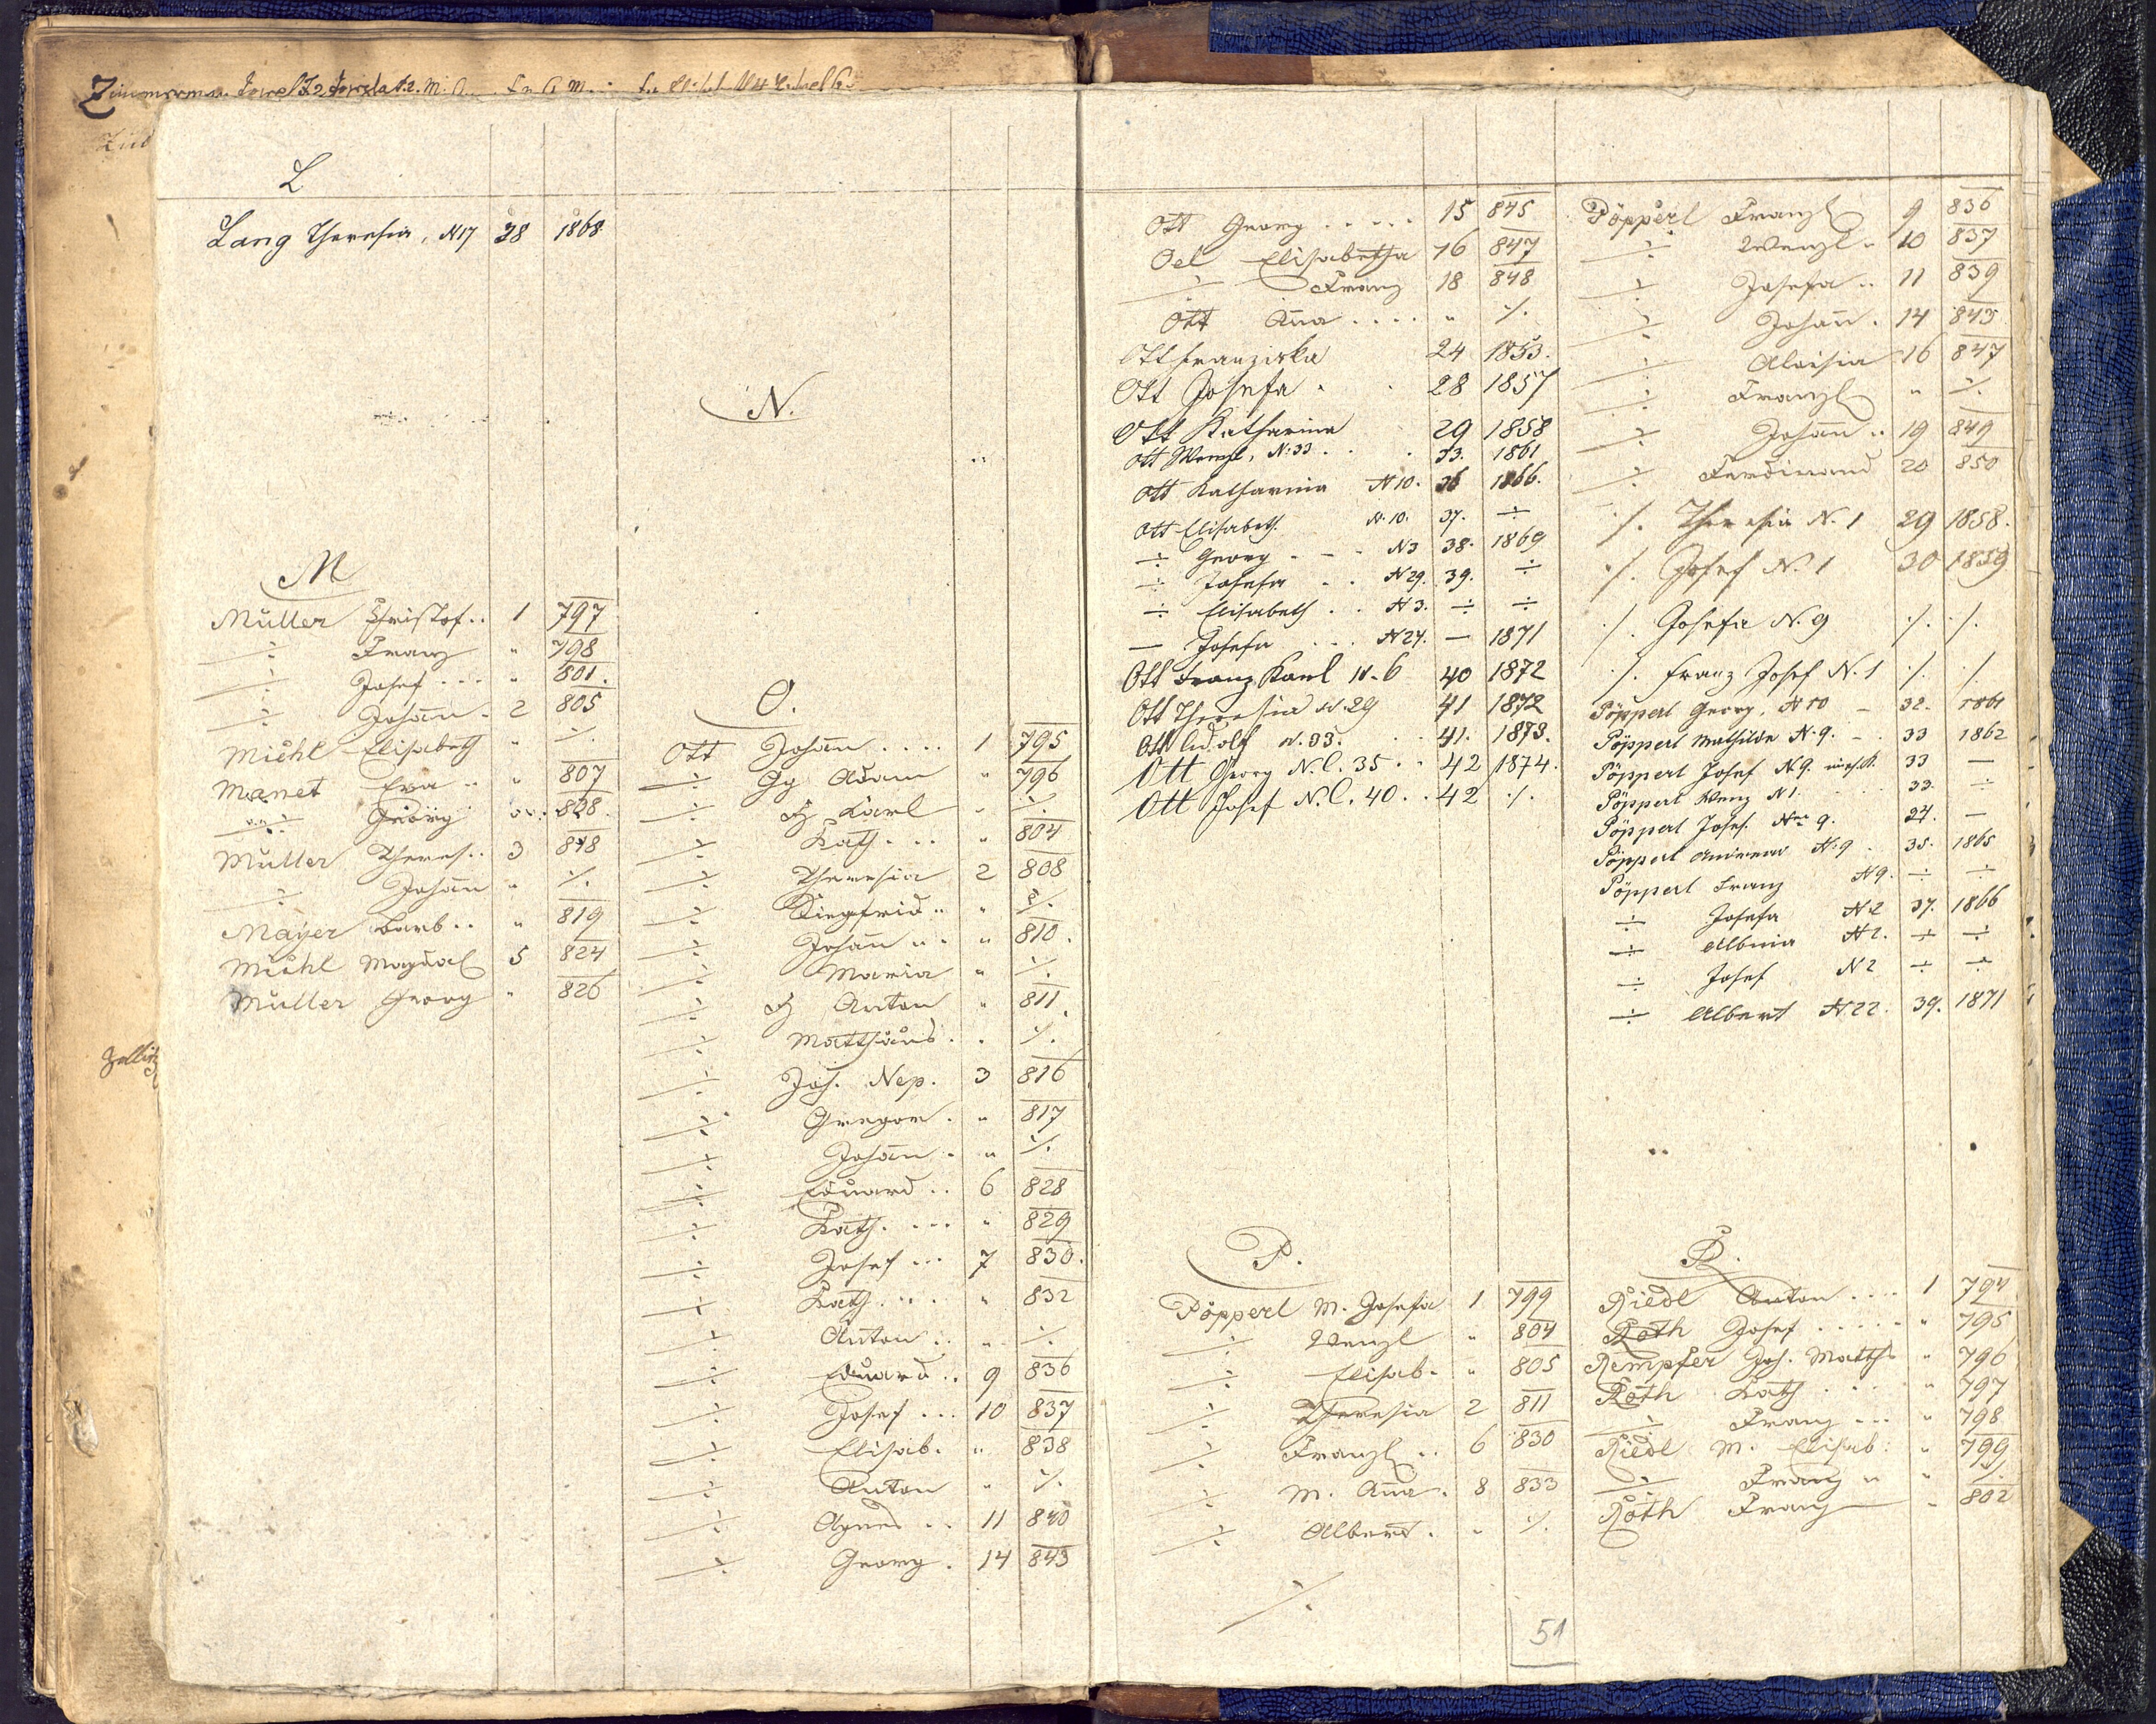 Zimmerman
L
Lang Theresia, N17 38 1868
M
Müller Christof.. 1 797
÷ Franz " 798
÷ Josef... " 801.
÷ Johann. 2 805
Michl Elisabeth " ·/.
Manet Eva.. " 807
÷ Georg 808.
Müller Theres.. 3 818
÷ Johann " ·/.
Mayer Barb.. " 819
Michl Magdal 5 824
Müller Georg " 826
N.
O.
Ott Johann.... 1 795
÷ Gg Adam " 796
÷ Karl " ·/.
÷ Kath... " 804
÷ Theresia 2 808
÷ Siegfrid.. " ·/.
÷ Johann... " 810.
÷ Maria " ·/.
÷ Anton " 811.
÷ Matthäus. . ·/.
÷ Joh. Nep. 3 816
÷ Gregor. " 817
÷ Johann. " ·/.
÷ Eduard.. 6 828
÷ Kath.... " 829
÷ Josef... 7 830.
÷ Kath.... " 832
÷ Anton.. " ·/.
÷ Eduard.. 9 836
÷ Josef... 10 837
÷ Elisab. " 838
÷ Anton " ·/.
÷ Agnes.. 11 840
÷ Georg. 14 843
Ott Georg..... 15 845
Oel Elisabetha 16 847
÷ Franz 18 848
Ott Anna.... " ·/.
Ott Franziska 24 1853.
Ott Josefa. . 28 1857
Ott Katharina 29 1858
Ott Wenzl, N:33. . . 33. 1861
Ott Katharina N10. 36 1866.
Ott Elisabeth. N.10. 37. ÷
÷ Georg - - - N3 38. 1869
÷ Josefa . . N29. 39. ÷
÷ Elisabeth . . N3. ÷ ÷
— Josefa ... N24. — 1871
Ott Franz Karl N.6 40 1872
Ott Theresia N.29 41 1872
Ott N.33. . . 41. 1873.
Ott Georg N.C. 35.. 42 1874.
Ott Josef N.C. 40.. 42 ·/.
Pöpperl Franz 9 836
÷ Wenzl. 10 837
÷ Josefa.. 11 839
÷ Johann. 14 843
÷ Aloisia 16 847
÷ Franz " ·/.
÷ Johann.. 19 849
÷ Ferdinand 20 850
·/. Theresia N.1 29 1858.
·/. Josef N.1 30 1859
·/. Josefa N.9 ·/. ·/.
·/. Franz Josef N.1 ·/. ·/.
Pöpperl Georg, N10 — 32. 1861
Pöpperl Mathilde N.9. - . 33 1862
Pöpperl Josef N9. 33 —
Pöpperl Wenz N1. 33. ÷
Pöpperl Josef. Nro 9. 34. —
Pöpperl Andreas N:9. 35. 1865
Pöpperl Franz N9. ÷ ÷
÷ Josefa N2 37. 1866
÷ Albina N2. ÷ ÷
÷ Josef N2 ÷ ÷
÷ Albert N22. 39. 1871
P.
Pöpperl M. Josefa 1 799
÷ Wenzl " 804
÷ Elisab. " 805
÷ Theresia 2 811
÷ Franz.. 6 830
÷ M. Anna. 8 833
÷ Albert. " ·/.
·/.
R.
Riedl Anton.... 1 794
Roth Josef..... " 795
Rempfer Joh. Matth. " 796
Roth Kath.... " 797
÷ Franz... " 798
Riedl M. Elisab. " 799
÷ Franz.. " ·/.
Roth Franz — " 802
51